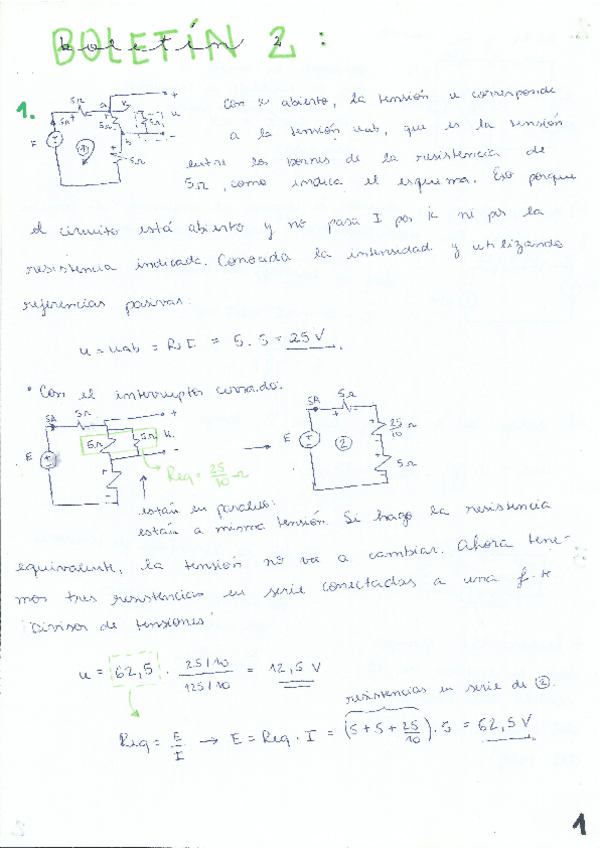 BOLETÍN 2:
1.
5Ω a K +
5Ω 5Ω u
E 1 b -
5Ω
Con K abierto, la tensión u corresponde
a la tensión uab, que es la tensión
entre los bornes de la resistencia de
5Ω, como indica el esquema. Eso porque
el circuito está abierto y no pasa I por K ni por la
resistencia indicada. Conocida la intensidad y utilizando
referencias pasivas:
u = uab = R·I = 5·5 = 25 V.
· Con el interruptor cerrado:
5A 5Ω +
5Ω 5Ω u
E -
Req = 25/10 Ω
5A 5Ω
E 2 25/10 Ω
5Ω
están en paralelo:
están a misma tensión. Si hago la resistencia
equivalente, la tensión no va a cambiar. Ahora tene-
mos tres resistencias en serie conectadas a una f.t
"Divisor de tensiones"
u = 62,5 · (25/10)/(125/10) = 12,5 V
resistencias en serie de 2.
Req = E/I → E = Req · I = (5+5+25/10)·5 = 62,5 V
1